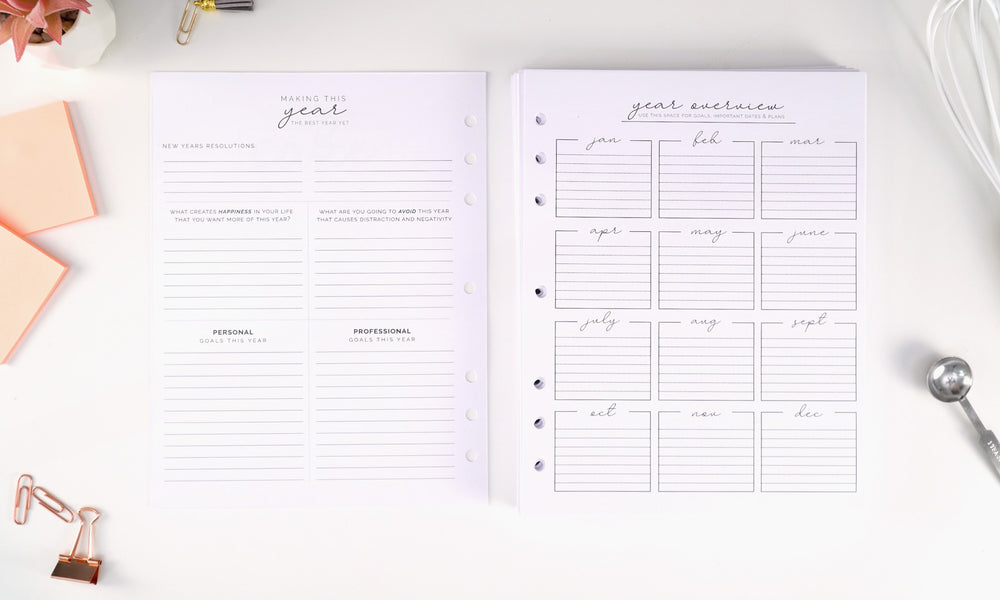 MAKING THIS
year
THE BEST YEAR YET
NEW YEARS RESOLUTIONS:
WHAT CREATES HAPPINESS IN YOUR LIFE
THAT YOU WANT MORE OF THIS YEAR?
WHAT ARE YOU GOING TO AVOID THIS YEAR
THAT CAUSES DISTRACTION AND NEGATIVITY
PERSONAL
GOALS THIS YEAR
PROFESSIONAL
GOALS THIS YEAR
year overview
USE THIS SPACE FOR GOALS, IMPORTANT DATES & PLANS
jan feb mar
apr may june
july aug sept
oct nov dec